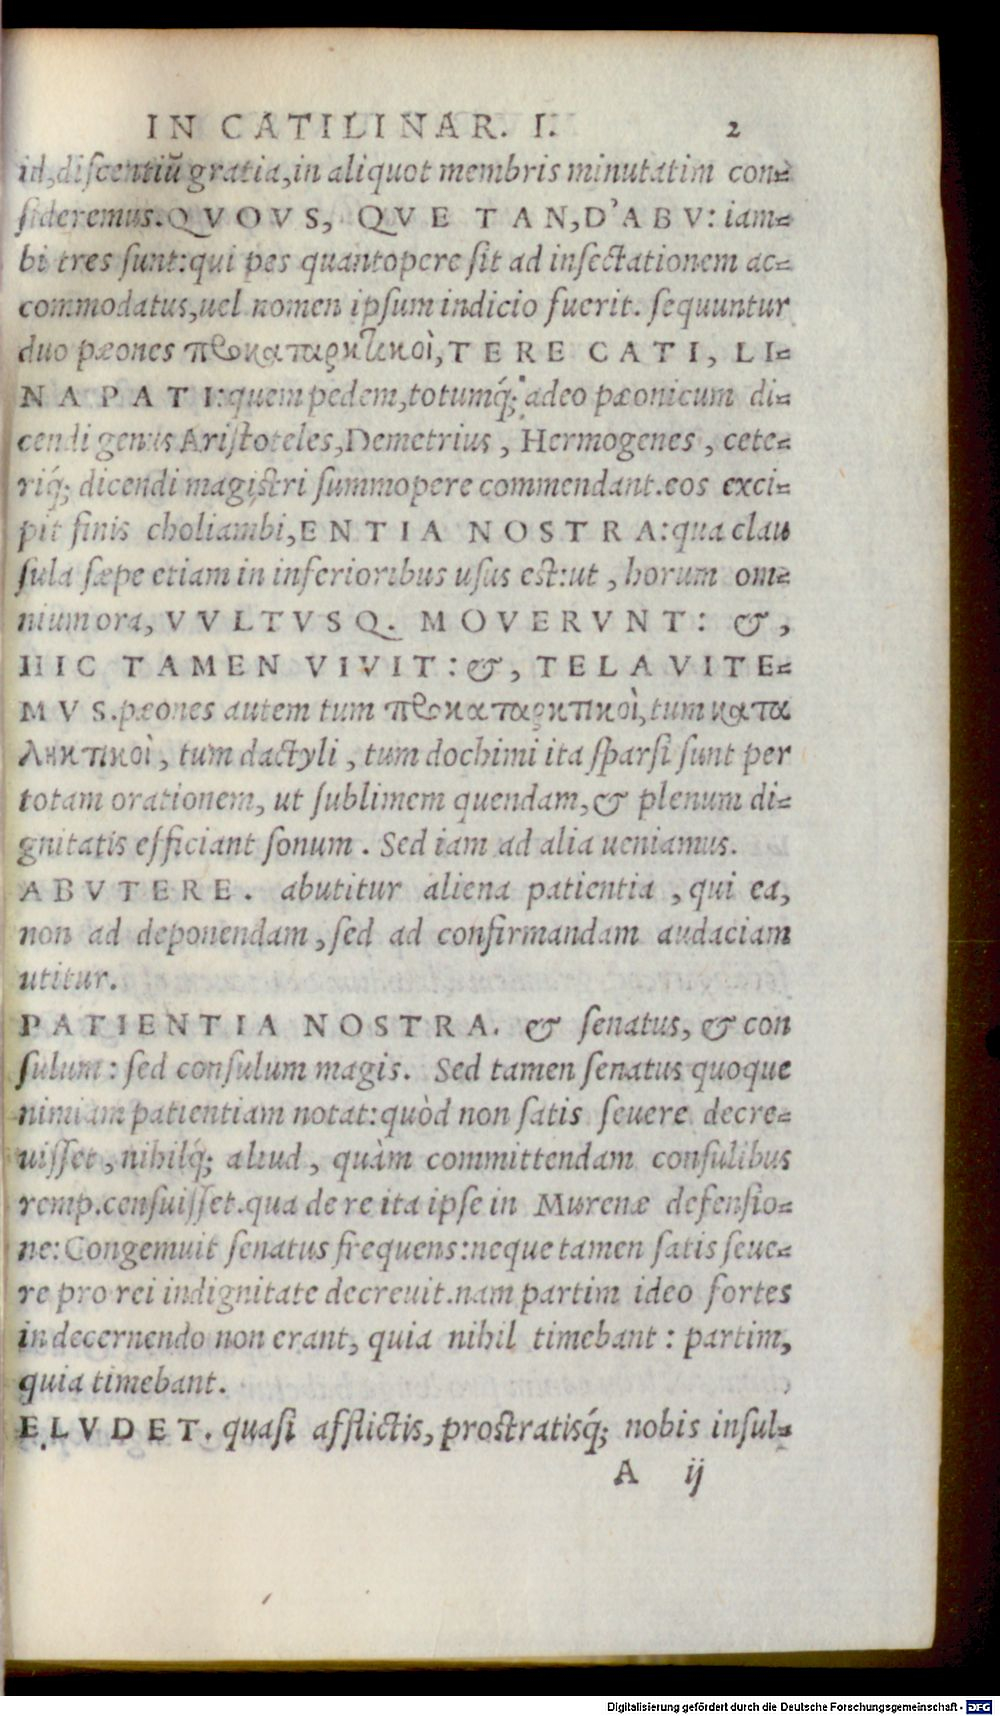 IN CATILINAR. I. 2
id, discentiũ gratia, in aliquot membris minutatim con=
sideremus. QVOVS, QVE TAN, D'ABV: iam=
bi tres sunt: qui pes quantopere sit ad insectationem ac=
commodatus, uel nomen ipsum indicio fuerit. sequuntur
duo pæones προκαταρκτικοὶ, TERE CATI, LI=
NAPATI: quem pedem, totumq́; adeo pæonicum di=
cendi genus Aristoteles, Demetrius, Hermogenes, cete=
riq́; dicendi magistri summopere commendant. eos exci=
pit finis choliambi, ENTIA NOSTRA: qua clau
sula sæpe etiam in inferioribus usus est: ut, horum om=
nium ora, VVLTVSQ. MOVERVNT: &,
HIC TAMEN VIVIT: &, TELA VITE=
MVS. pæones autem tum προκαταρκτικοὶ, tum κατα
ληκτικοὶ, tum dactyli, tum dochimi ita sparsi sunt per
totam orationem, ut sublimem quendam, & plenum di=
gnitatis efficiant sonum. Sed iam ad alia ueniamus.
ABVTERE. abutitur aliena patientia, qui ea,
non ad deponendam, sed ad confirmandam audaciam
utitur.
PATIENTIA NOSTRA. & senatus, & con
sulum: sed consulum magis. Sed tamen senatus quoque
nimiam patientiam notat: quòd non satis seuere decre=
uisset, nihilq́; aliud, quàm committendam consulibus
remp. censuisset. qua de re ita ipse in Murenæ defensio=
ne: Congemuit senatus frequens: neque tamen satis seue=
re pro rei indignitate decreuit. nam partim ideo fortes
in decernendo non erant, quia nihil timebant: partim,
quia timebant.
ELVDET. quasi afflictis, prostratisq́; nobis insul=
A ij
Digitalisierung gefördert durch die Deutsche Forschungsgemeinschaft - DFG